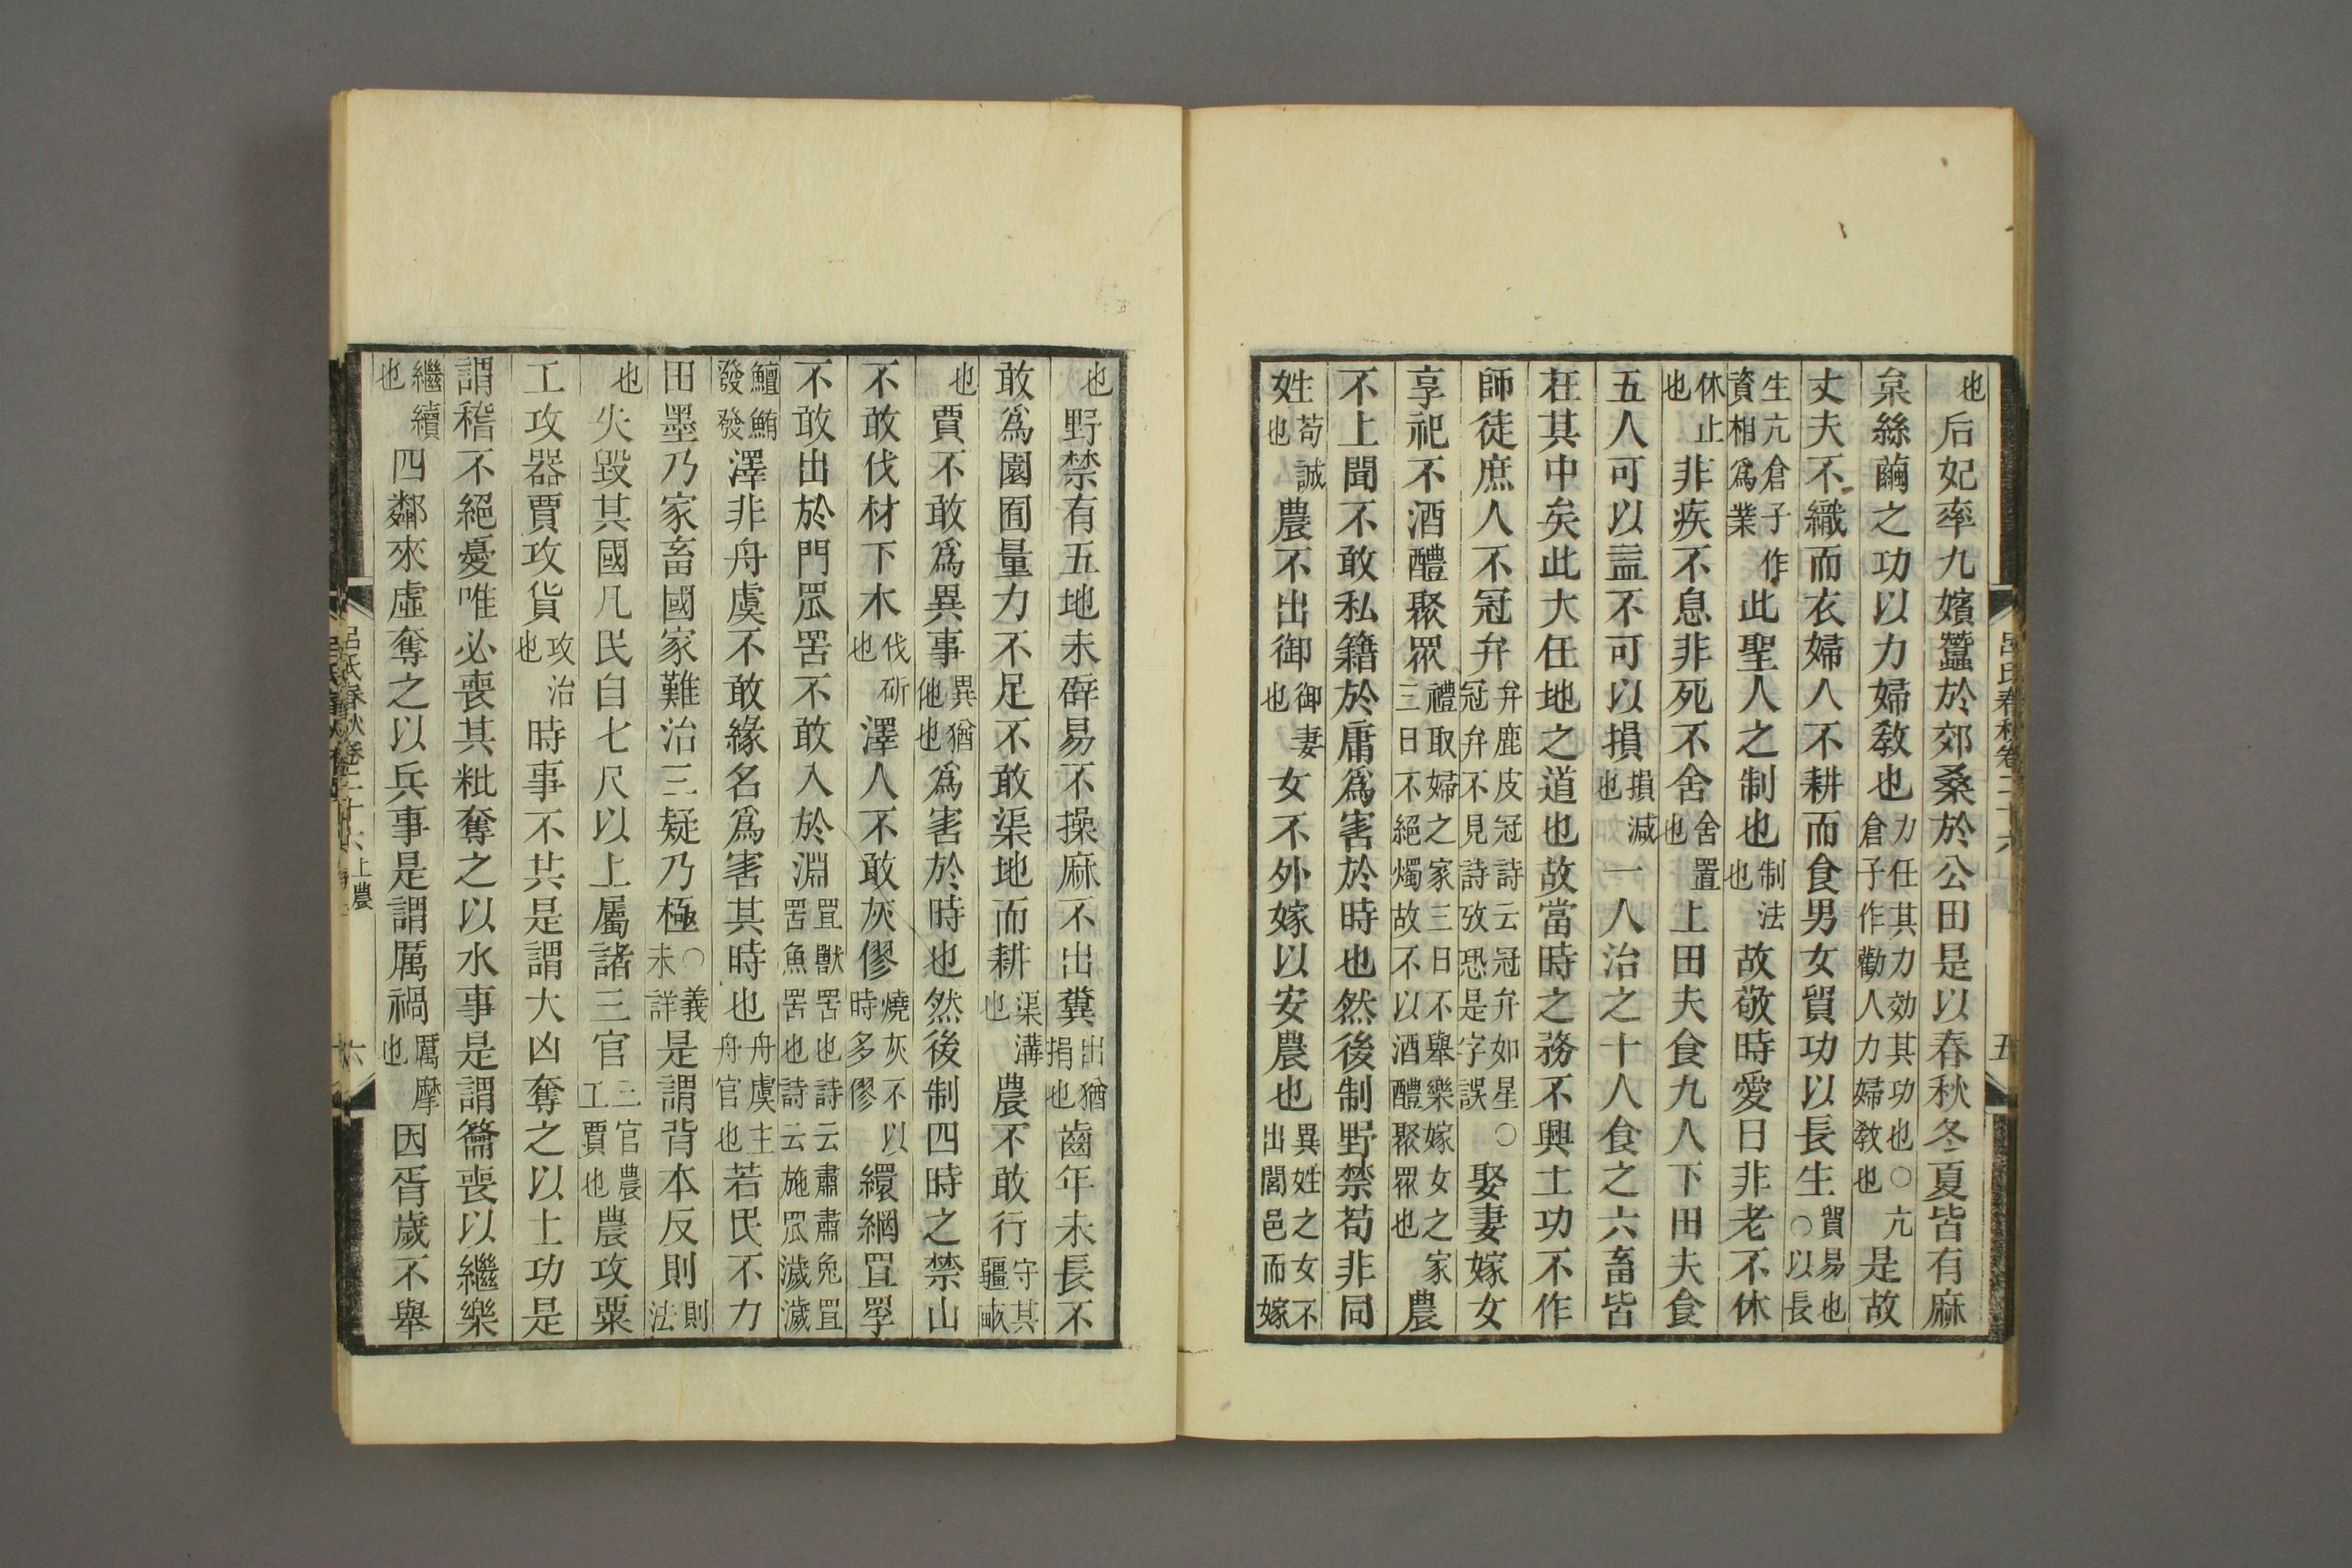 也后妃率九嬪蠶於郊桑於公田是以春秋冬夏皆有麻
枲絲繭之功以力婦敎也力任其力効其功也○亢倉子作勸人力婦敎也是故
丈夫不織而衣婦人不耕而食男女貿功以長生貿易也○以長
生亢倉子作資相爲業此聖人之制也制法也故敬時愛日非老不休
休止也非疾不息非死不舍舍置也上田夫食九人下田夫食
五人可以益不可以損損減也一人治之十人食之六畜皆
在其中矣此大任地之道也故當時之務不興土功不作
師徒庶人不冠弁弁鹿皮冠詩云冠弁如星○冠弁不見詩攷恐是字誤娶妻嫁女
享祀不酒醴聚眾禮取婦之家三日不舉樂嫁女之家三日不絕燭故不以酒醴聚眾也農
不上聞不敢私籍於庸爲害於時也然後制野禁苟非同
姓苟誠也農不出御御妻也女不外嫁以安農也異姓之女不出閭邑而嫁
呂氏春秋卷二十六 五
也野禁有五地未辟易不操麻不出糞出猶捐也齒年未長不
敢爲園囿量力不足不敢渠地而耕渠溝也農不敢行守其疆畝
也賈不敢爲異事異猶他也爲害於時也然後制四時之禁山
不敢伐材下木伐斫也澤人不敢灰僇燒灰不以時多僇繯網罝罦
不敢出於門罛罟不敢入於淵罝獸罟也罟魚罟也詩云肅肅兔罝詩云施罛濊濊
鱣鮪發發澤非舟虞不敢緣名爲害其時也舟虞主舟官也若民不力
田墨乃家畜國家難治三疑乃極○義未詳是謂背本反則則法
也失毀其國凡民自七尺以上屬諸三官三官農工賈也農攻粟
工攻器賈攻貨攻治也時事不共是謂大凶奪之以土功是
謂稽不絕憂唯必喪其粃奪之以水事是謂籥喪以繼樂
繼續也四鄰來虛奪之以兵事是謂厲禍厲摩也因胥歲不舉
呂氏春秋卷二十六 上農 六